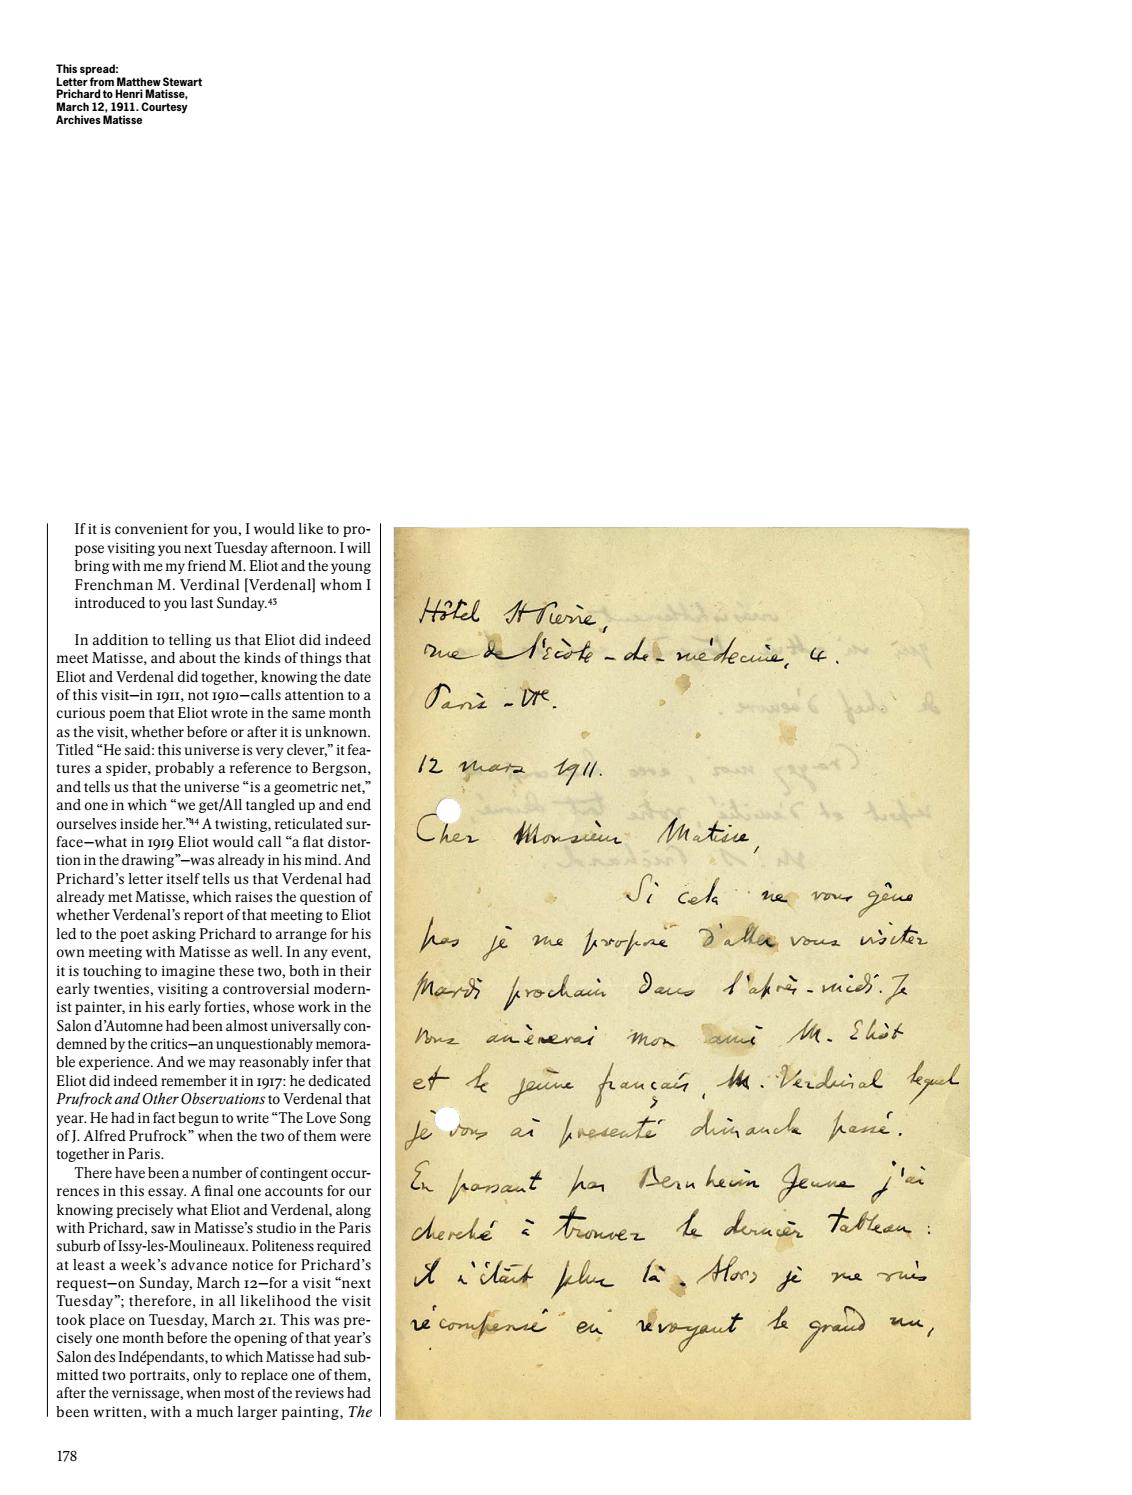 This spread:
Letter from Matthew Stewart
Prichard to Henri Matisse,
March 12, 1911. Courtesy
Archives Matisse
If it is convenient for you, I would like to pro-
pose visiting you next Tuesday afternoon. I will
bring with me my friend M. Eliot and the young
Frenchman M. Verdinal [Verdenal] whom I
introduced to you last Sunday.⁴³
In addition to telling us that Eliot did indeed
meet Matisse, and about the kinds of things that
Eliot and Verdenal did together, knowing the date
of this visit—in 1911, not 1910—calls attention to a
curious poem that Eliot wrote in the same month
as the visit, whether before or after it is unknown.
Titled “He said: this universe is very clever,” it fea-
tures a spider, probably a reference to Bergson,
and tells us that the universe “is a geometric net,”
and one in which “we get/All tangled up and end
ourselves inside her.”⁴⁴ A twisting, reticulated sur-
face—what in 1919 Eliot would call “a flat distor-
tion in the drawing”—was already in his mind. And
Prichard’s letter itself tells us that Verdenal had
already met Matisse, which raises the question of
whether Verdenal’s report of that meeting to Eliot
led to the poet asking Prichard to arrange for his
own meeting with Matisse as well. In any event,
it is touching to imagine these two, both in their
early twenties, visiting a controversial modern-
ist painter, in his early forties, whose work in the
Salon d’Automne had been almost universally con-
demned by the critics—an unquestionably memora-
ble experience. And we may reasonably infer that
Eliot did indeed remember it in 1917: he dedicated
Prufrock and Other Observations to Verdenal that
year. He had in fact begun to write “The Love Song
of J. Alfred Prufrock” when the two of them were
together in Paris.
There have been a number of contingent occur-
rences in this essay. A final one accounts for our
knowing precisely what Eliot and Verdenal, along
with Prichard, saw in Matisse’s studio in the Paris
suburb of Issy-les-Moulineaux. Politeness required
at least a week’s advance notice for Prichard’s
request—on Sunday, March 12—for a visit “next
Tuesday”; therefore, in all likelihood the visit
took place on Tuesday, March 21. This was pre-
cisely one month before the opening of that year’s
Salon des Indépendants, to which Matisse had sub-
mitted two portraits, only to replace one of them,
after the vernissage, when most of the reviews had
been written, with a much larger painting, The
Hôtel St Pierre,
rue de l'Ecòle-de-médecine, 4.
Paris - VIe.
12 mars 1911.
Cher Monsieur Matisse,
Si cela ne vous gêne
pas je me propose d'aller vous visiter
Mardi prochain dans l'après-midi. Je
vous amènerai mon ami M. Eliot
et le jeune français, M. Verdinal lequel
je vous ai presenté dimanche passé.
En passant par Bernheim Jeune j'ai
cherché à trouver le dernier tableau :
il n'était plus là. Alors je me suis
récompensé en revoyant le grand nu,
178